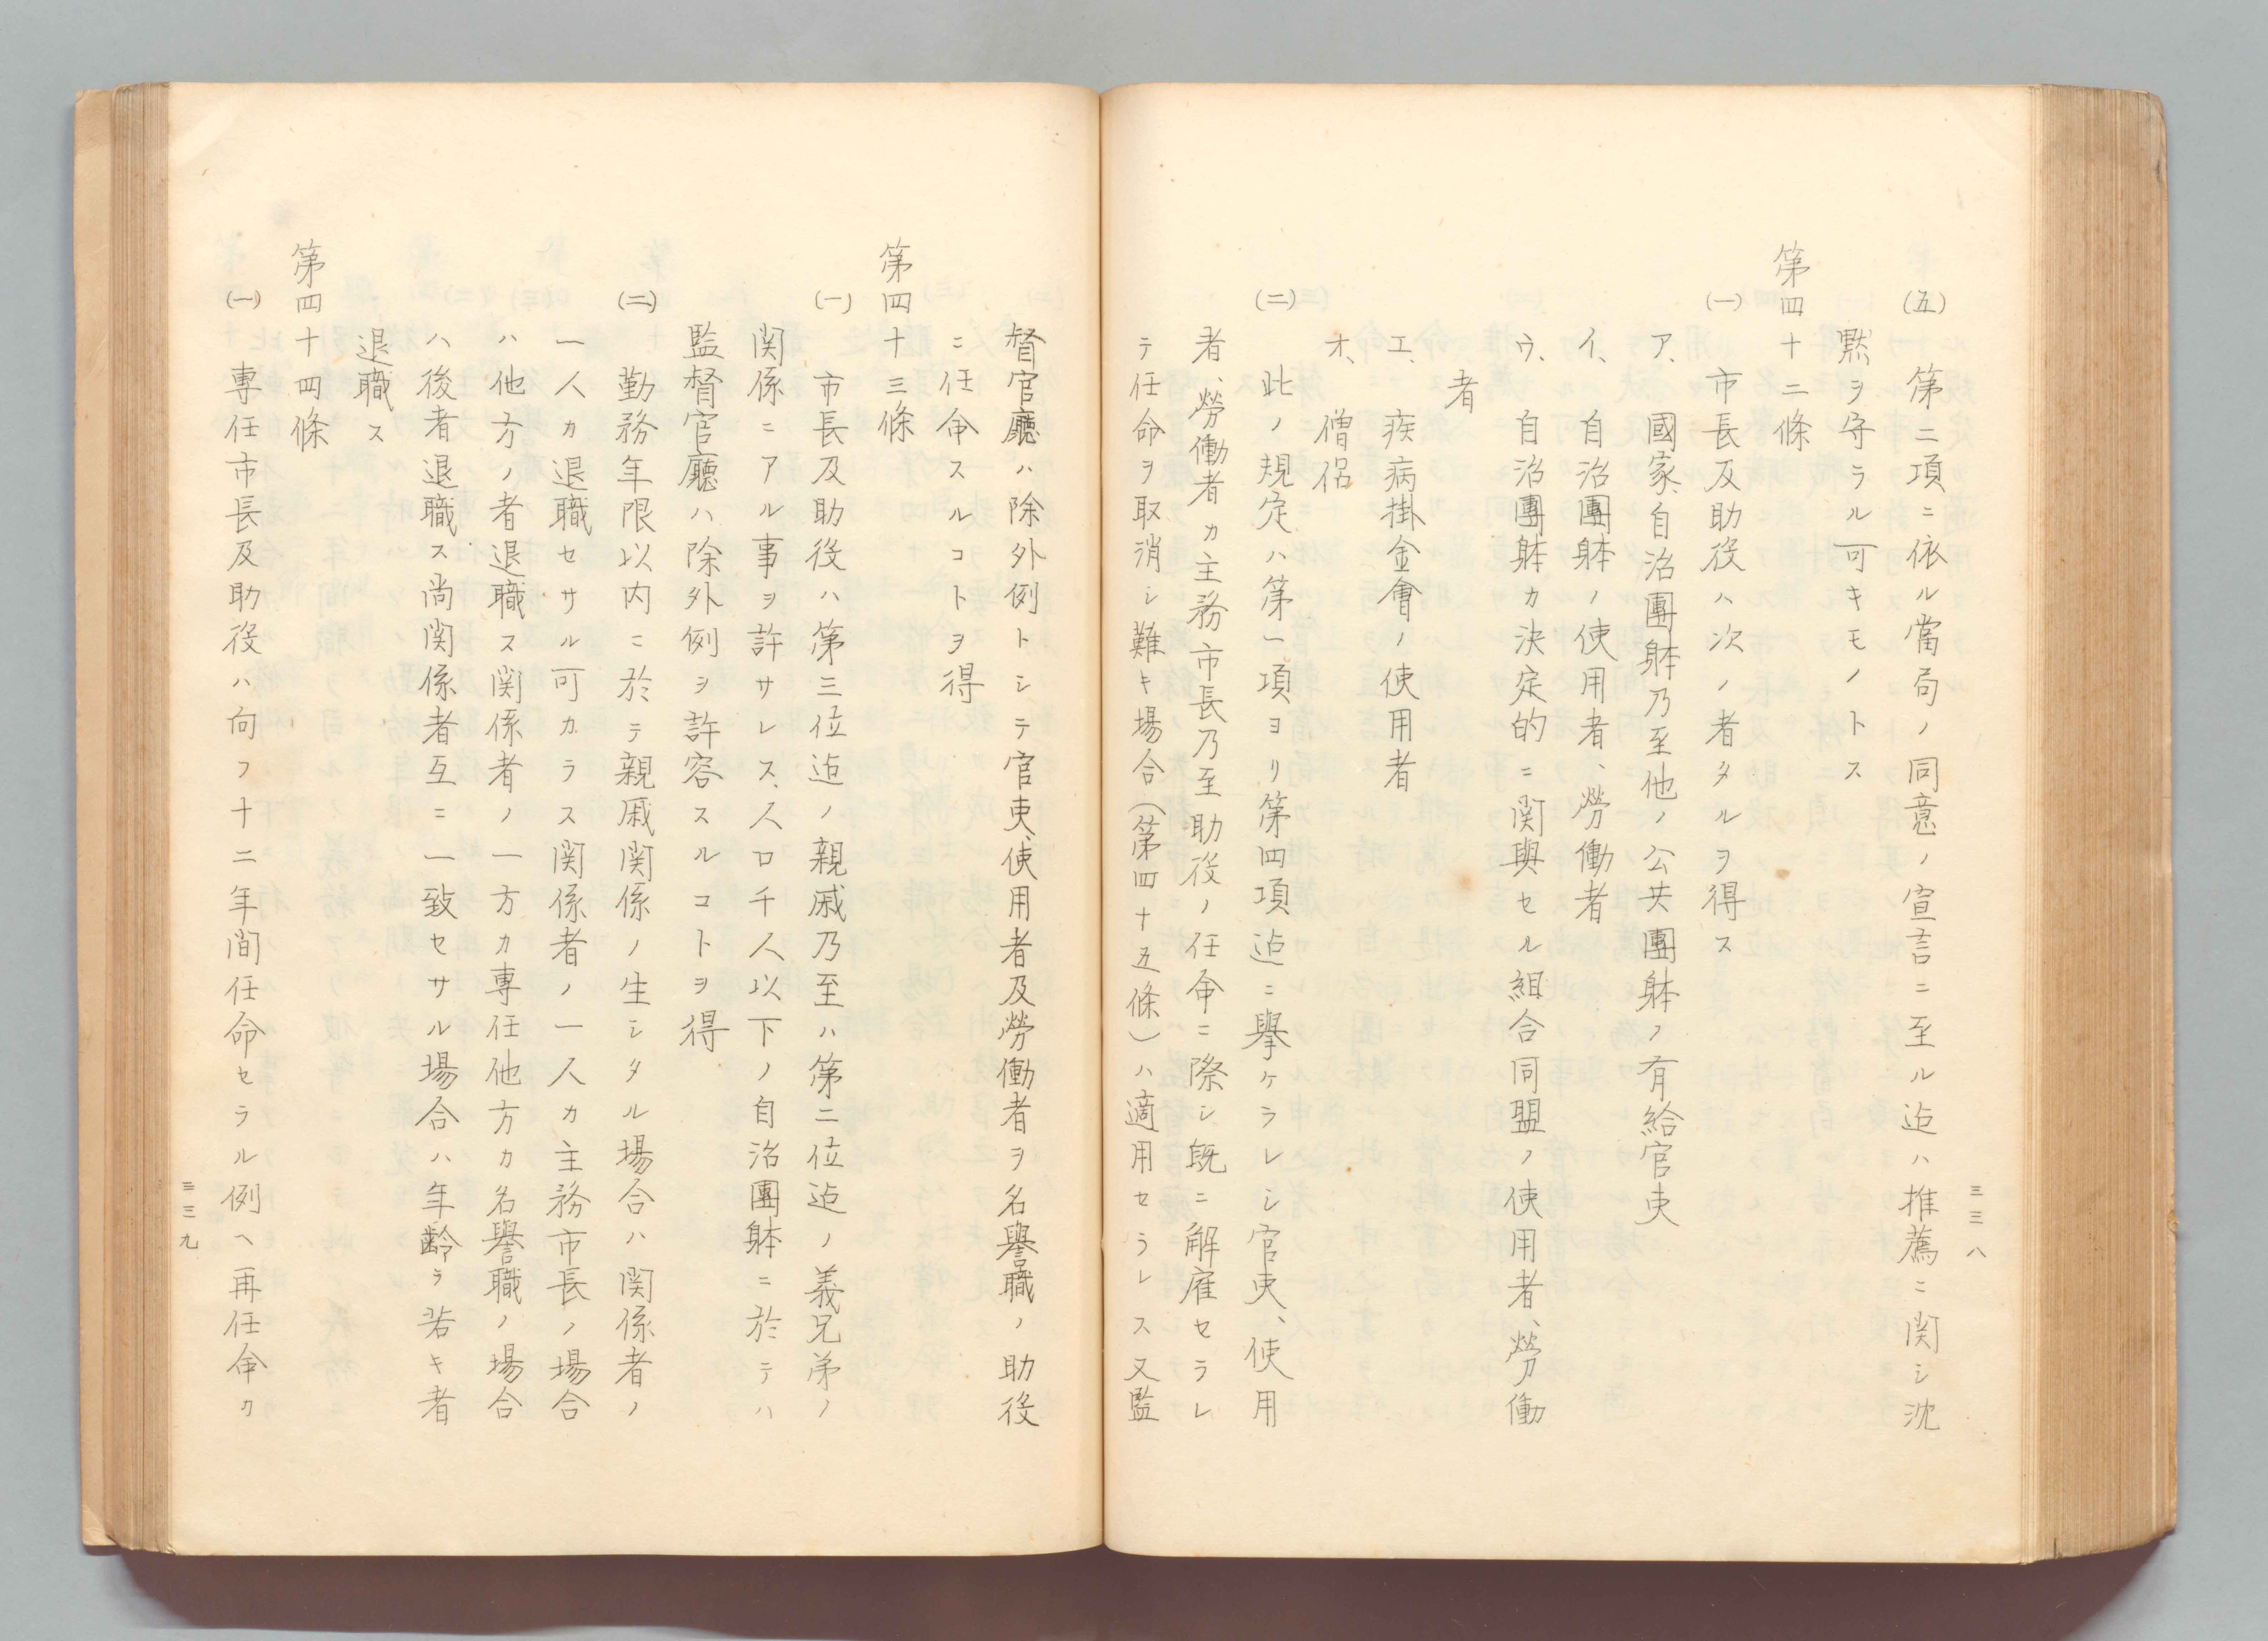 三三八
(五) 第二項ニ依ル當局ノ同意ノ宣言ニ至ル迠ハ推薦ニ関シ沈
黙ヲ守ラル可キモノトス
第四十二條
(一) 市長及助役ハ次ノ者タルヲ得ス
ア、國家、自治團躰乃至他ノ公共團躰ノ有給官吏
イ、自治團躰ノ使用者、勞働者
ウ、自治團躰カ決定的ニ関與セル組合同盟ノ使用者、勞働
者
エ、疾病掛金會ノ使用者
オ、僧侶
(二) 此ノ規定ハ第一項ヨリ第四項迠ニ擧ケラレシ官吏、使用
者、勞働者カ主務市長乃至助役ノ任命ニ際シ既ニ解雇セラレ
テ任命ヲ取消シ難キ場合(第四十五條)ハ適用セラレス又監
督官廳ハ除外例トシテ官吏、使用者及勞働者ヲ名譽職ノ助役
ニ任命スルコトヲ得
第四十三條
(一) 市長及助役ハ第三位迠ノ親戚乃至ハ第二位迠ノ義兄弟ノ
関係ニアル事ヲ許サレス、人口千人以下ノ自治團躰ニ於テハ
監督官廳ハ除外例ヲ許容スルコトヲ得
(二) 勤務年限以内ニ於テ親戚関係ノ生シタル場合ハ関係者ノ
一人カ退職セサル可カラス関係者ノ一人カ主務市長ノ場合
ハ他方ノ者退職ス関係者ノ一方カ專任他方カ名譽職ノ場合
ハ後者退職ス尚関係者互ニ一致セサル場合ハ年齢ラ若キ者
退職ス
第四十四條
(一) 專任市長及助役ハ向フ十二年間任命セラル例ヘ再任命カ
三三九